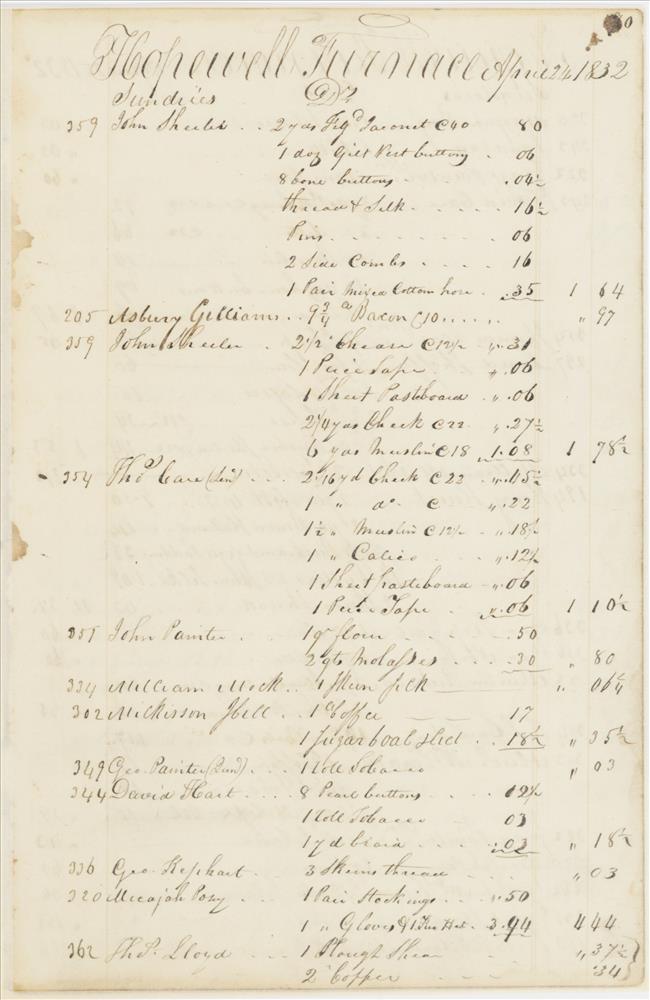 80
Hopewell Furnace April 24 1832
Sundries Dr
359 John Sheeler .. 2 yds Fig'd Jaconet C 40 80
1 doz Gilt Vest buttons . 06
8 bone buttons . .04½
thread & Silk . . . . . 16½
Pins . . . . . . . . 06
2 Side Combs . . . 16
1 Pair Mixed Cotton hose . .35 1 64
205 Asbury Gilliams .. 9¾ lb Bacon C10 . . . . . " 97
359 John Sheeler . 2½ " Cheese C 12½ - ". 31
1 Peice Tape . ". 06
1 Sheet Pasteboard . ". 06
2¼ yds Check C 22 . ". 27½
6 yds Muslin C 18 1.08 1 78½
354 Thos Care (Sen) . . . 2 1/16 yd Check C 22 - ". 45½
1 " do C ". 22
1½ " Muslin C 12½ - ". 18½
1 " Calico . . ". 12½
1 Sheet pasteboard - ". 06
1 Peice Tape . ". 06 1 10½
351 John Painter . 1 qr flour - - - - . 50
2 qts Molasses . . . . 30 " 80
334 William Mock . . 1 Skein Silk " 06¼
302 Wilkisson Hill . . 1 " Coffee 17
1 Sugar boal & lid . . 18½ " 35½
349 Geo. Painter (Jun) . . . 1 Roll Tobacco " 03
344 David Hart . . . . 8 Pearl buttons . . . . 12½
1 Roll Tobacco 03
1 yd braid . . . . 03 " 18½
336 Geo. Kephart . . . 3 Skeins thread " 03
320 Micajah Posey . 1 Pair Stockings . . . ". 50
1 " Gloves & 1 Fur Hat . 3.94 4 44
362 Thos. Lloyd . . . 1 Plough Shear " 37½
2 " Copper 34